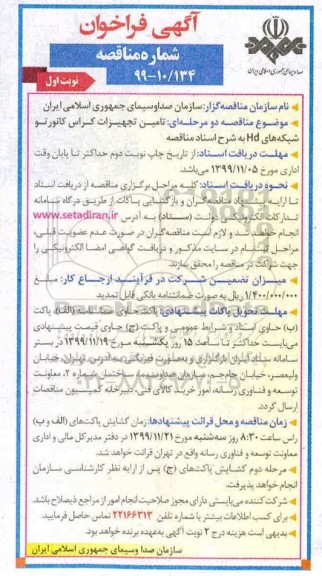 آگهی فراخوان
صدا و سیمای جمهوری اسلامی ایران
شماره مناقصه
۹۹-۱۰/۱۳۴
نوبت اول
نام سازمان مناقصه‌گزار: سازمان صداوسیمای جمهوری اسلامی ایران
موضوع مناقصه دو مرحله‌ای: تامین تجهیزات کراس کانورتو
شبکه‌های Hd به شرح اسناد مناقصه
مهلت دریافت اسناد: از تاریخ چاپ نوبت دوم حداکثر تا پایان وقت
اداری مورخ ۱۳۹۹/۱۱/۰۵ می‌باشد.
نحوه دریافت اسناد: کلیه مراحل برگزاری مناقصه از دریافت اسناد
تا ارایه پیشنهاد مناقصه‌گران و بازگشایی پاکات از طریق درگاه سامانه
تدارکات الکترونیکی دولت (ستاد) به آدرس www.setadiran.ir
انجام خواهد شد و لازم است مناقصه‌گران در صورت عدم عضویت قبلی،
مراحل ثبت‌نام در سایت مذکور و دریافت گواهی امضا الکترونیکی را
جهت شرکت در مناقصه را محقق سازند.
میزان تضمین شرکت در فرآیند ارجاع کار: مبلغ
۱/۴۰۰/۰۰۰/۰۰۰ ریال به صورت ضمانتنامه بانکی قابل تمدید
مهلت تحویل پاکات پیشنهادی: پاکت حاوی ضمانتنامه (الف)، پاکت
(ب) حاوی اسناد و شرایط عمومی و پاکت (ج) حاوی قیمت پیشنهادی
می‌بایست حداکثر تا ساعت ۱۵ روز یکشنبه مورخ ۱۳۹۹/۱۱/۱۹ در بستر
سامانه ستاد ایران بارگذاری و به‌صورت فیزیکی به آدرس تهران، خیابان
ولیعصر، خیابان جام‌جم، سازمان صداوسیما، ساختمان شماره ۲، معاونت
توسعه و فناوری رسانه، امور خرید کالای فنی، دبیرخانه کمیسیون مناقصات
ارسال گردد.
زمان مناقصه و محل قرائت پیشنهادها: زمان گشایش پاکت‌های (الف و ب)
راس ساعت ۸:۳۰ روز سه‌شنبه مورخ ۱۳۹۹/۱۱/۲۱ در دفتر مدیرکل مالی و اداری
معاونت توسعه و فناوری رسانه واقع در تهران قرائت خواهد شد.
مرحله دوم گشایش پاکت‌های (ج) پس از ارایه نظر کارشناسی سازمان
انجام خواهد پذیرفت.
شرکت‌کننده می‌بایستی دارای مجوز صلاحیت انجام امور از مراجع ذیصلاح باشد.
برای کسب اطلاعات بیشتر با شماره تلفن ۲۲۱۶۶۳۱۳ تماس حاصل فرمایید.
بدیهی است هزینه درج ۲ نوبت آگهی به‌عهده برنده خواهد بود.
سازمان صدا و سیمای جمهوری اسلامی ایران